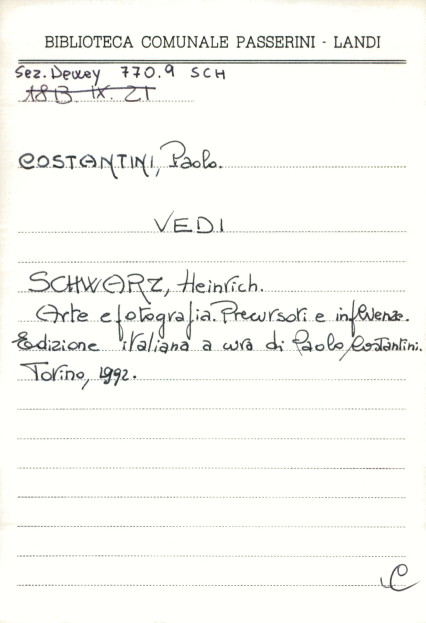 BIBLIOTECA COMUNALE PASSERINI - LANDI
Sez. Dewey 770.9 SCH
18B. IX. 21
COSTANTINI, Paolo.
VEDI
SCHWARZ, Heinrich.
Arte e fotografia. Precursori e influenze.
Edizione italiana a cura di Paolo Costantini.
Torino, 1992.
C